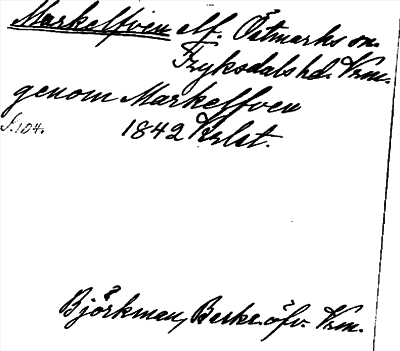 Markelfven elf. Östmarks sn.
Fryksdals hd. Vrm.
genom Markelfven
S. 104. 1842 Krlst.
Björkman, Beskr. öfv. Vrm.